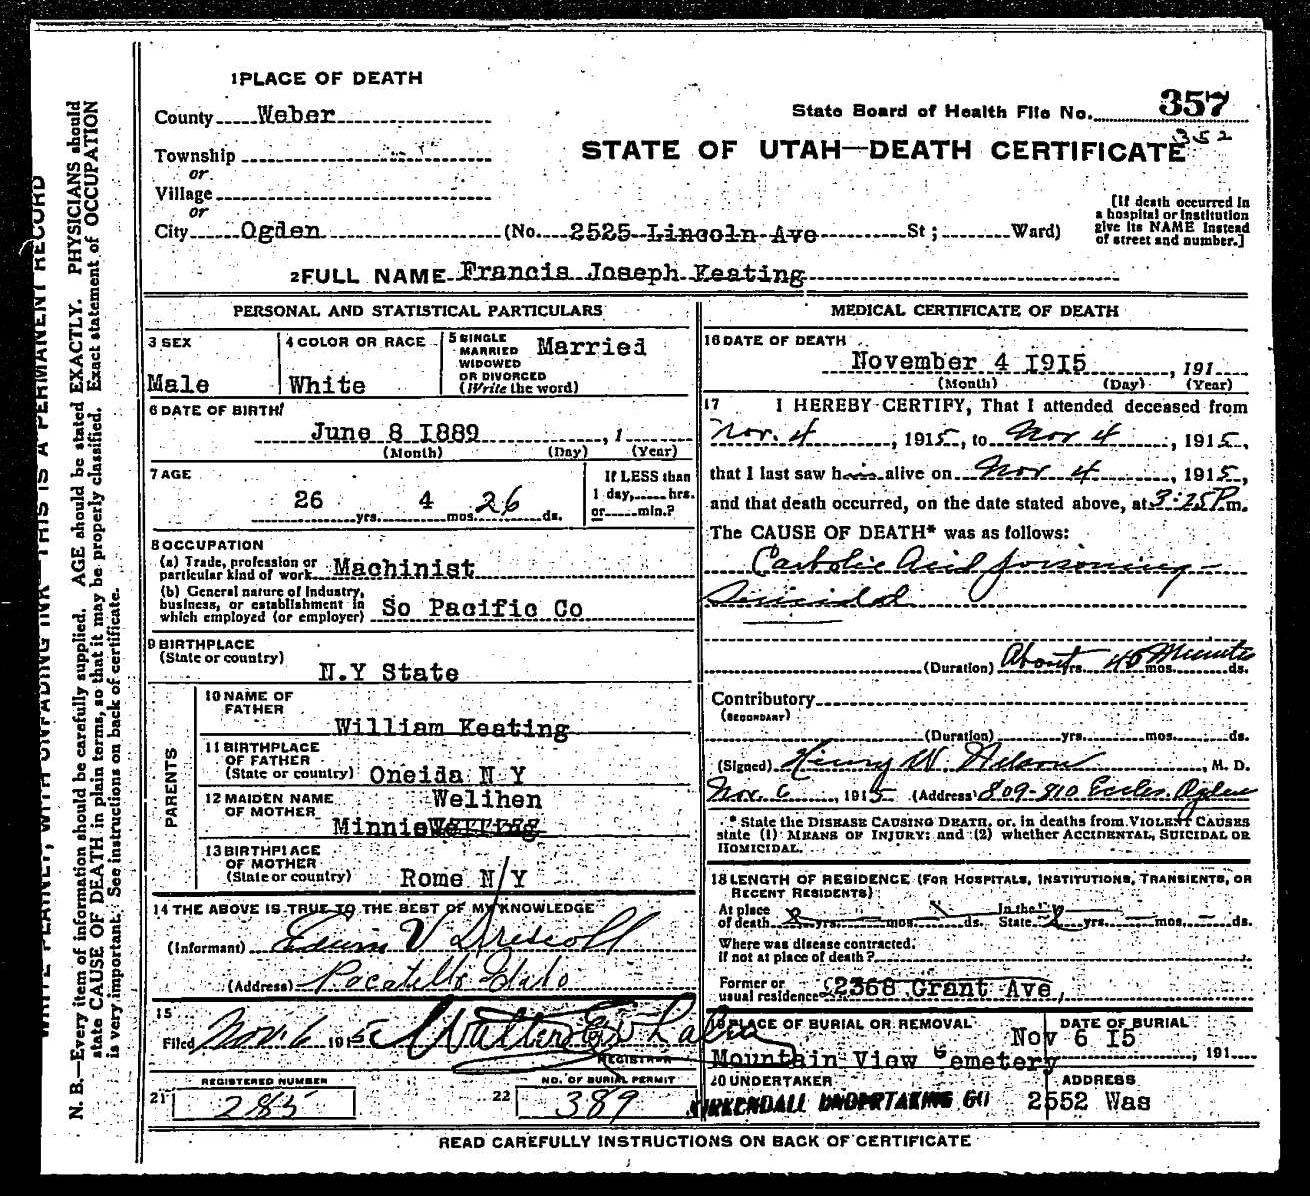 1 PLACE OF DEATH
County Weber
State Board of Health File No. 357
352
Township
or
STATE OF UTAH—DEATH CERTIFICATE
Village
or
City Ogden (No. 2525 Lincoln Ave St; Ward)
[If death occurred in
a hospital or institution
give its NAME instead
of street and number.]
2 FULL NAME Francis Joseph Keating
PERSONAL AND STATISTICAL PARTICULARS
3 SEX
Male
4 COLOR OR RACE
White
5 SINGLE
MARRIED
WIDOWED
OR DIVORCED
(Write the word)
Married
6 DATE OF BIRTH
June 8 1889 , 1
(Month) (Day) (Year)
7 AGE
26 yrs. 4 mos. 26 ds.
If LESS than
1 day, hrs.
or min.?
8 OCCUPATION
(a) Trade, profession or
particular kind of work Machinist
(b) General nature of Industry,
business, or establishment in
which employed (or employer) So Pacific Co
9 BIRTHPLACE
(State or country)
N.Y State
PARENTS
10 NAME OF
FATHER
William Keating
11 BIRTHPLACE
OF FATHER
(State or country) Oneida N Y
12 MAIDEN NAME
OF MOTHER
Welihen
Minnie
13 BIRTHPLACE
OF MOTHER
(State or country) Rome N Y
14 THE ABOVE IS TRUE TO THE BEST OF MY KNOWLEDGE
(Informant) Edwin V Driscoll
(Address) Pocatello Idaho
15
Filed Nov. 6 1915
REGISTRAR
REGISTERED NUMBER
21 285
NO. OF BURIAL PERMIT
22 389
MEDICAL CERTIFICATE OF DEATH
16 DATE OF DEATH
November 4 1915 , 191
(Month) (Day) (Year)
17 I HEREBY CERTIFY, That I attended deceased from
Nov. 4 , 1915, to Nov 4 , 1915,
that I last saw him alive on Nov 4 , 1915,
and that death occurred, on the date stated above, at 3:25 P.m.
The CAUSE OF DEATH* was as follows:
Carbolic Acid poisoning -
Suicidal
(Duration) About yrs. 40 Minutes mos. ds.
Contributory
(SECONDARY)
(Duration) yrs. mos. ds.
(Signed) Henry W. Nelson , M. D.
Nov. 6 , 1915 (Address) 809-810 Eccles. Ogden
* State the DISEASE CAUSING DEATH, or, in deaths from VIOLENT CAUSES
state (1) MEANS OF INJURY; and (2) whether ACCIDENTAL, SUICIDAL OR
HOMICIDAL.
18 LENGTH OF RESIDENCE (FOR HOSPITALS, INSTITUTIONS, TRANSIENTS, OR
RECENT RESIDENTS)
At place
of death 2 yrs. mos. ds. In the
State 2 yrs. mos. ds.
Where was disease contracted,
if not at place of death?
Former or
usual residence 2368 Grant Ave,
19 PLACE OF BURIAL OR REMOVAL
Mountain View Cemetery
DATE OF BURIAL
Nov 6 15 , 191
20 UNDERTAKER
KIRKENDALL UNDERTAKING CO
ADDRESS
2552 Was
READ CAREFULLY INSTRUCTIONS ON BACK OF CERTIFICATE
WRITE PLAINLY, WITH UNFADING INK—THIS IS A PERMANENT RECORD
N. B.—Every item of information should be carefully supplied. AGE should be stated EXACTLY. PHYSICIANS should
state CAUSE OF DEATH in plain terms, so that it may be properly classified. Exact statement of OCCUPATION
is very important. See instructions on back of certificate.